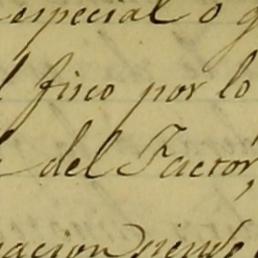 especial o
fisco por lo
del Factor,
siendo